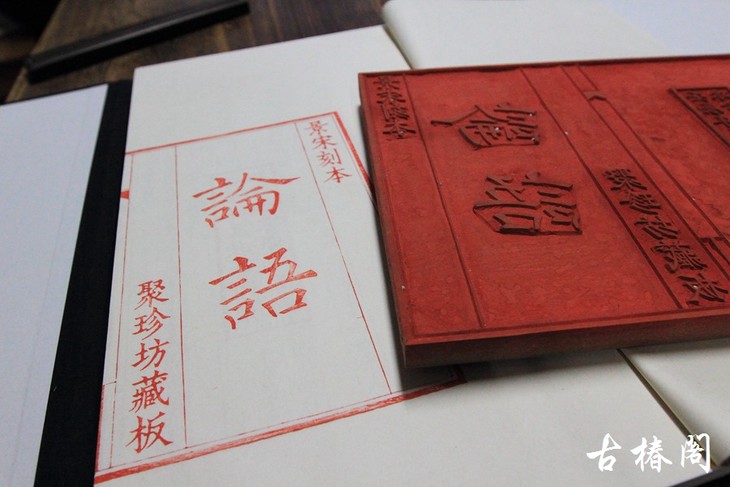 景宋刻本
論語
聚珍坊藏板
古椿閣